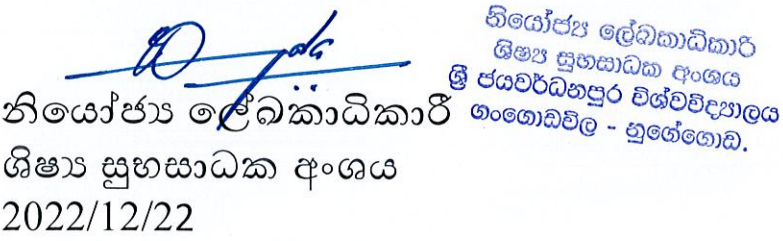 නියෝජ්‍ය ලේඛකාධිකාරී
ශිෂ්‍ය සුභසාධක අංශය
2022/12/22
නියෝජ්‍ය ලේඛකාධිකාරි
ශිෂ්‍ය සුභසාධක අංශය
ශ්‍රී ජයවර්ධනපුර විශ්වවිද්‍යාලය
ගංගොඩවිල - නුගේගොඩ.